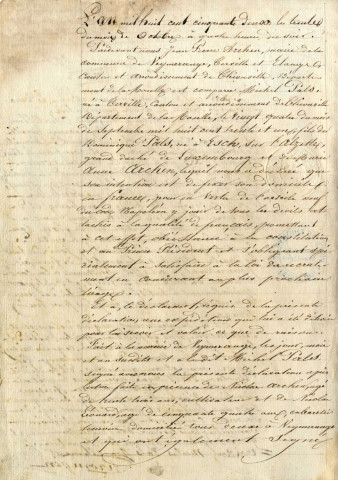 L'An mil huit cent cinquante deux le trente
du mois de Octobre à quatre heures du soir.
Pardevant nous Jean Pierre Archen, maire de la
commune de Veymerange, Terville et Elange
Canton et arrondissement de Thionville, Départe-
ment de la Moselle, est comparu Michel Pals
né à Terville, Canton et arrondissement de Thionville
Département de la Moselle, le vingt quatre du mois
de Septembre mil huit cent trente et un, fils de
Dominique Pals, né à Esch, sur l'Alzette,
grand duché de Luxembourg et de Marie
Anne Archen, lequel nous a déclaré que
son intention est de fixer son domicile
en france, pour en vertu de l'article neuf
du Code Napoléon y jouir de tous les droits at-
tachés à la qualité de français, promettant
à cet effet, obéissance à la constitution
et au Prince Président et s'obligeant spé-
cialement à satisfaire à la loi du recrute-
ment en concourant au plus prochain
tirage.
Et a, le déclarant, requis de la présente
déclaration, une expédition qui lui a été délivrée
pour lui servir et valoir ce que de raison.
Fait à la mairie de Veymerange, les jour, mois
et an susdits et a le dit Michel Pals
signé avec nous la présente déclaration après
lecture faite, en présence de Nicolas Archen, âgé
de trente trois ans, cultivateur et de Nicolas
Léonard, âgé de cinquante quatre ans, cabaretier
domiciliés tous deux à Veymerange
et qui ont également signé